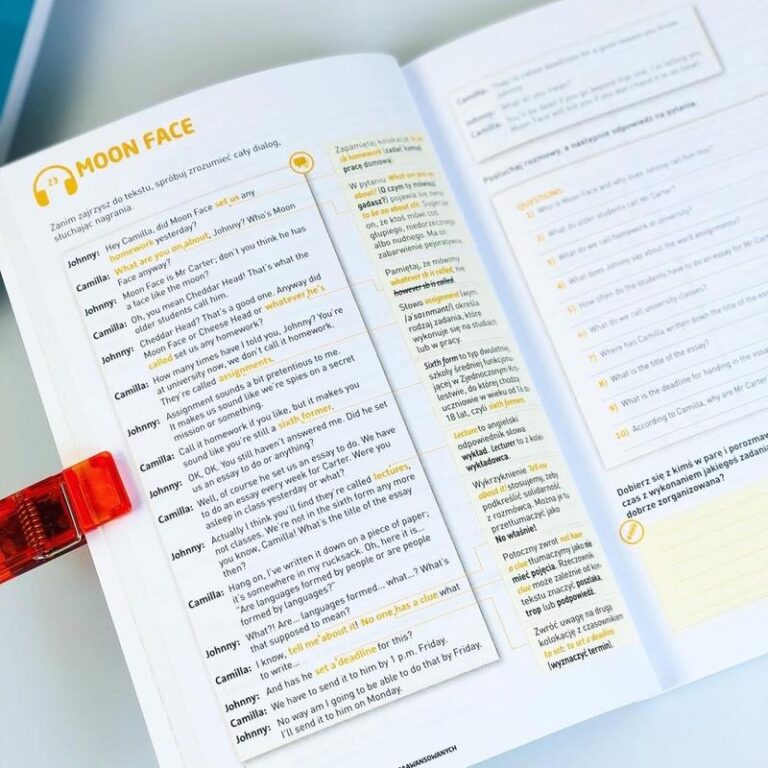 23
MOON FACE
Zanim zajrzysz do tekstu, spróbuj zrozumieć cały dialog,
słuchając nagrania.
Johnny: Hey Camilla, did Moon Face set us any
homework yesterday?
Camilla: What are you on about, Johnny? Who's Moon
Face anyway?
Johnny: Moon Face is Mr Carter; don't you think he has
a face like the moon?
Camilla: Oh, you mean Cheddar Head! That's what the
older students call him.
Johnny: Cheddar Head? That's a good one. Anyway did
Moon Face or Cheese Head or whatever he's
called set us any homework?
Camilla: How many times have I told you, Johnny? You're
at university now, we don't call it homework.
They're called assignments.
Johnny: Assignment sounds a bit pretentious to me.
It makes us sound like we're spies on a secret
mission or something.
Camilla: Call it homework if you like, but it makes you
sound like you're still a sixth former.
Johnny: OK, OK. You still haven't answered me. Did he set
us an essay to do or anything?
Camilla: Well, of course he set us an essay to do. We have
to do an essay every week for Carter. Were you
asleep in class yesterday or what?
Johnny: Actually I think you'll find they're called lectures,
not classes. We're not in the sixth form any more
you know, Camilla! What's the title of the essay
then?
Camilla: Hang on, I've written it down on a piece of paper;
it's somewhere in my rucksack. Oh, here it is...
"Are languages formed by people or are people
formed by languages?"
Johnny: What?! Are... languages formed... what...? What's
that supposed to mean?
Camilla: I know, tell me about it! No one has a clue what
to write...
Johnny: And has he set a deadline for this?
Camilla: We have to send it to him by 1 p.m. Friday.
Johnny: No way am I going to be able to do that by Friday.
I'll send it to him on Monday.
Zapamiętaj kolokację
sb homework (zadać komuś
pracę domową).
W pytaniu What are you on
about? (O czym ty mówisz/
gadasz?) pojawia się zwrot
to be on about sth. Sugeruje
on, że ktoś mówi coś
głupiego, niedorzecznego
albo nudnego. Ma on
zabarwienie pejoratywne.
Pamiętaj, że mówimy
whatever sb is called, nie
however sb is called.
Słowo assignment (wym.
/əˈsaɪnmənt/) określa
rodzaj zadania, które
wykonuje się na studiach
lub w pracy.
Sixth form to typ dwuletniej
szkoły średniej funkcjonu-
jącej w Zjednoczonym Kró-
lestwie, do której chodzą
uczniowie w wieku od 16 do
18 lat, czyli sixth formers.
Lecture to angielski
odpowiednik słowa
wykład. Lecturer to z kolei
wykładowca.
Wykrzyknienie Tell me
about it! stosujemy, żeby
podkreślić solidarność
z rozmówcą. Można je tu
przetłumaczyć jako
No właśnie!
Potoczny zwrot not have
a clue tłumaczymy jako nie
mieć pojęcia. Rzeczownik
clue może zależnie od kon-
tekstu znaczyć poszlaka,
trop lub podpowiedź.
Zwróć uwagę na drugą
kolokację z czasownikiem
to set: to set a deadline
(wyznaczyć termin).
AAWANSOWANYCH
Camilla: They're called deadlines for a good reason you know,
Johnny.
Johnny: What do you mean?
Camilla: You'll be dead if you go beyond that line. I'm telling you,
Moon Face will kill you if you don't hand it in on time!
Posłuchaj rozmowy, a następnie odpowiedz na pytania.
QUESTIONS:
1) Who is Moon Face and why does Johnny call him this?
2) What do older students call Mr Carter?
3) What do we call homework at university?
4) What does Johnny say about the word assignments?
5) How often do the students have to do an essay for Mr Carter
6) What do we call university classes?
7) Where has Camilla written down the title of the
8) What is the title of the essay?
9) What is the deadline for handing in the essay
10) According to Camilla, why are Mr Carter
Dobierz się z kimś w parę i porozmaw
czas z wykonaniem jakiegoś zadania
dobrze zorganizowana?